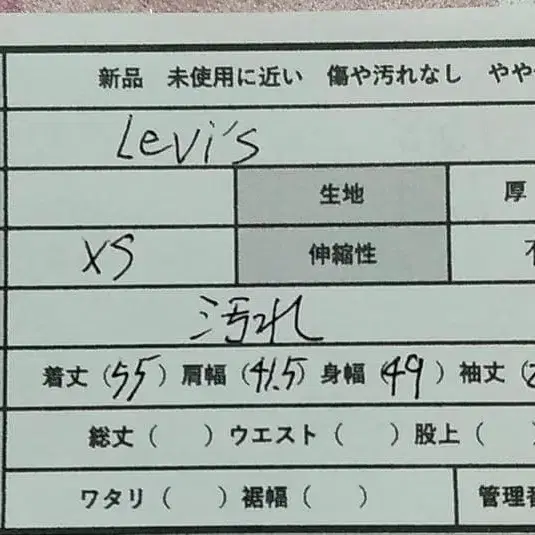 新品 未使用に近い 傷や汚れなし やや
Levi's
生地 厚
XS 伸縮性
汚れ
着丈(55) 肩幅(41.5) 身幅(49) 袖丈(
総丈( ) ウエスト( ) 股上(
ワタリ( ) 裾幅( ) 管理